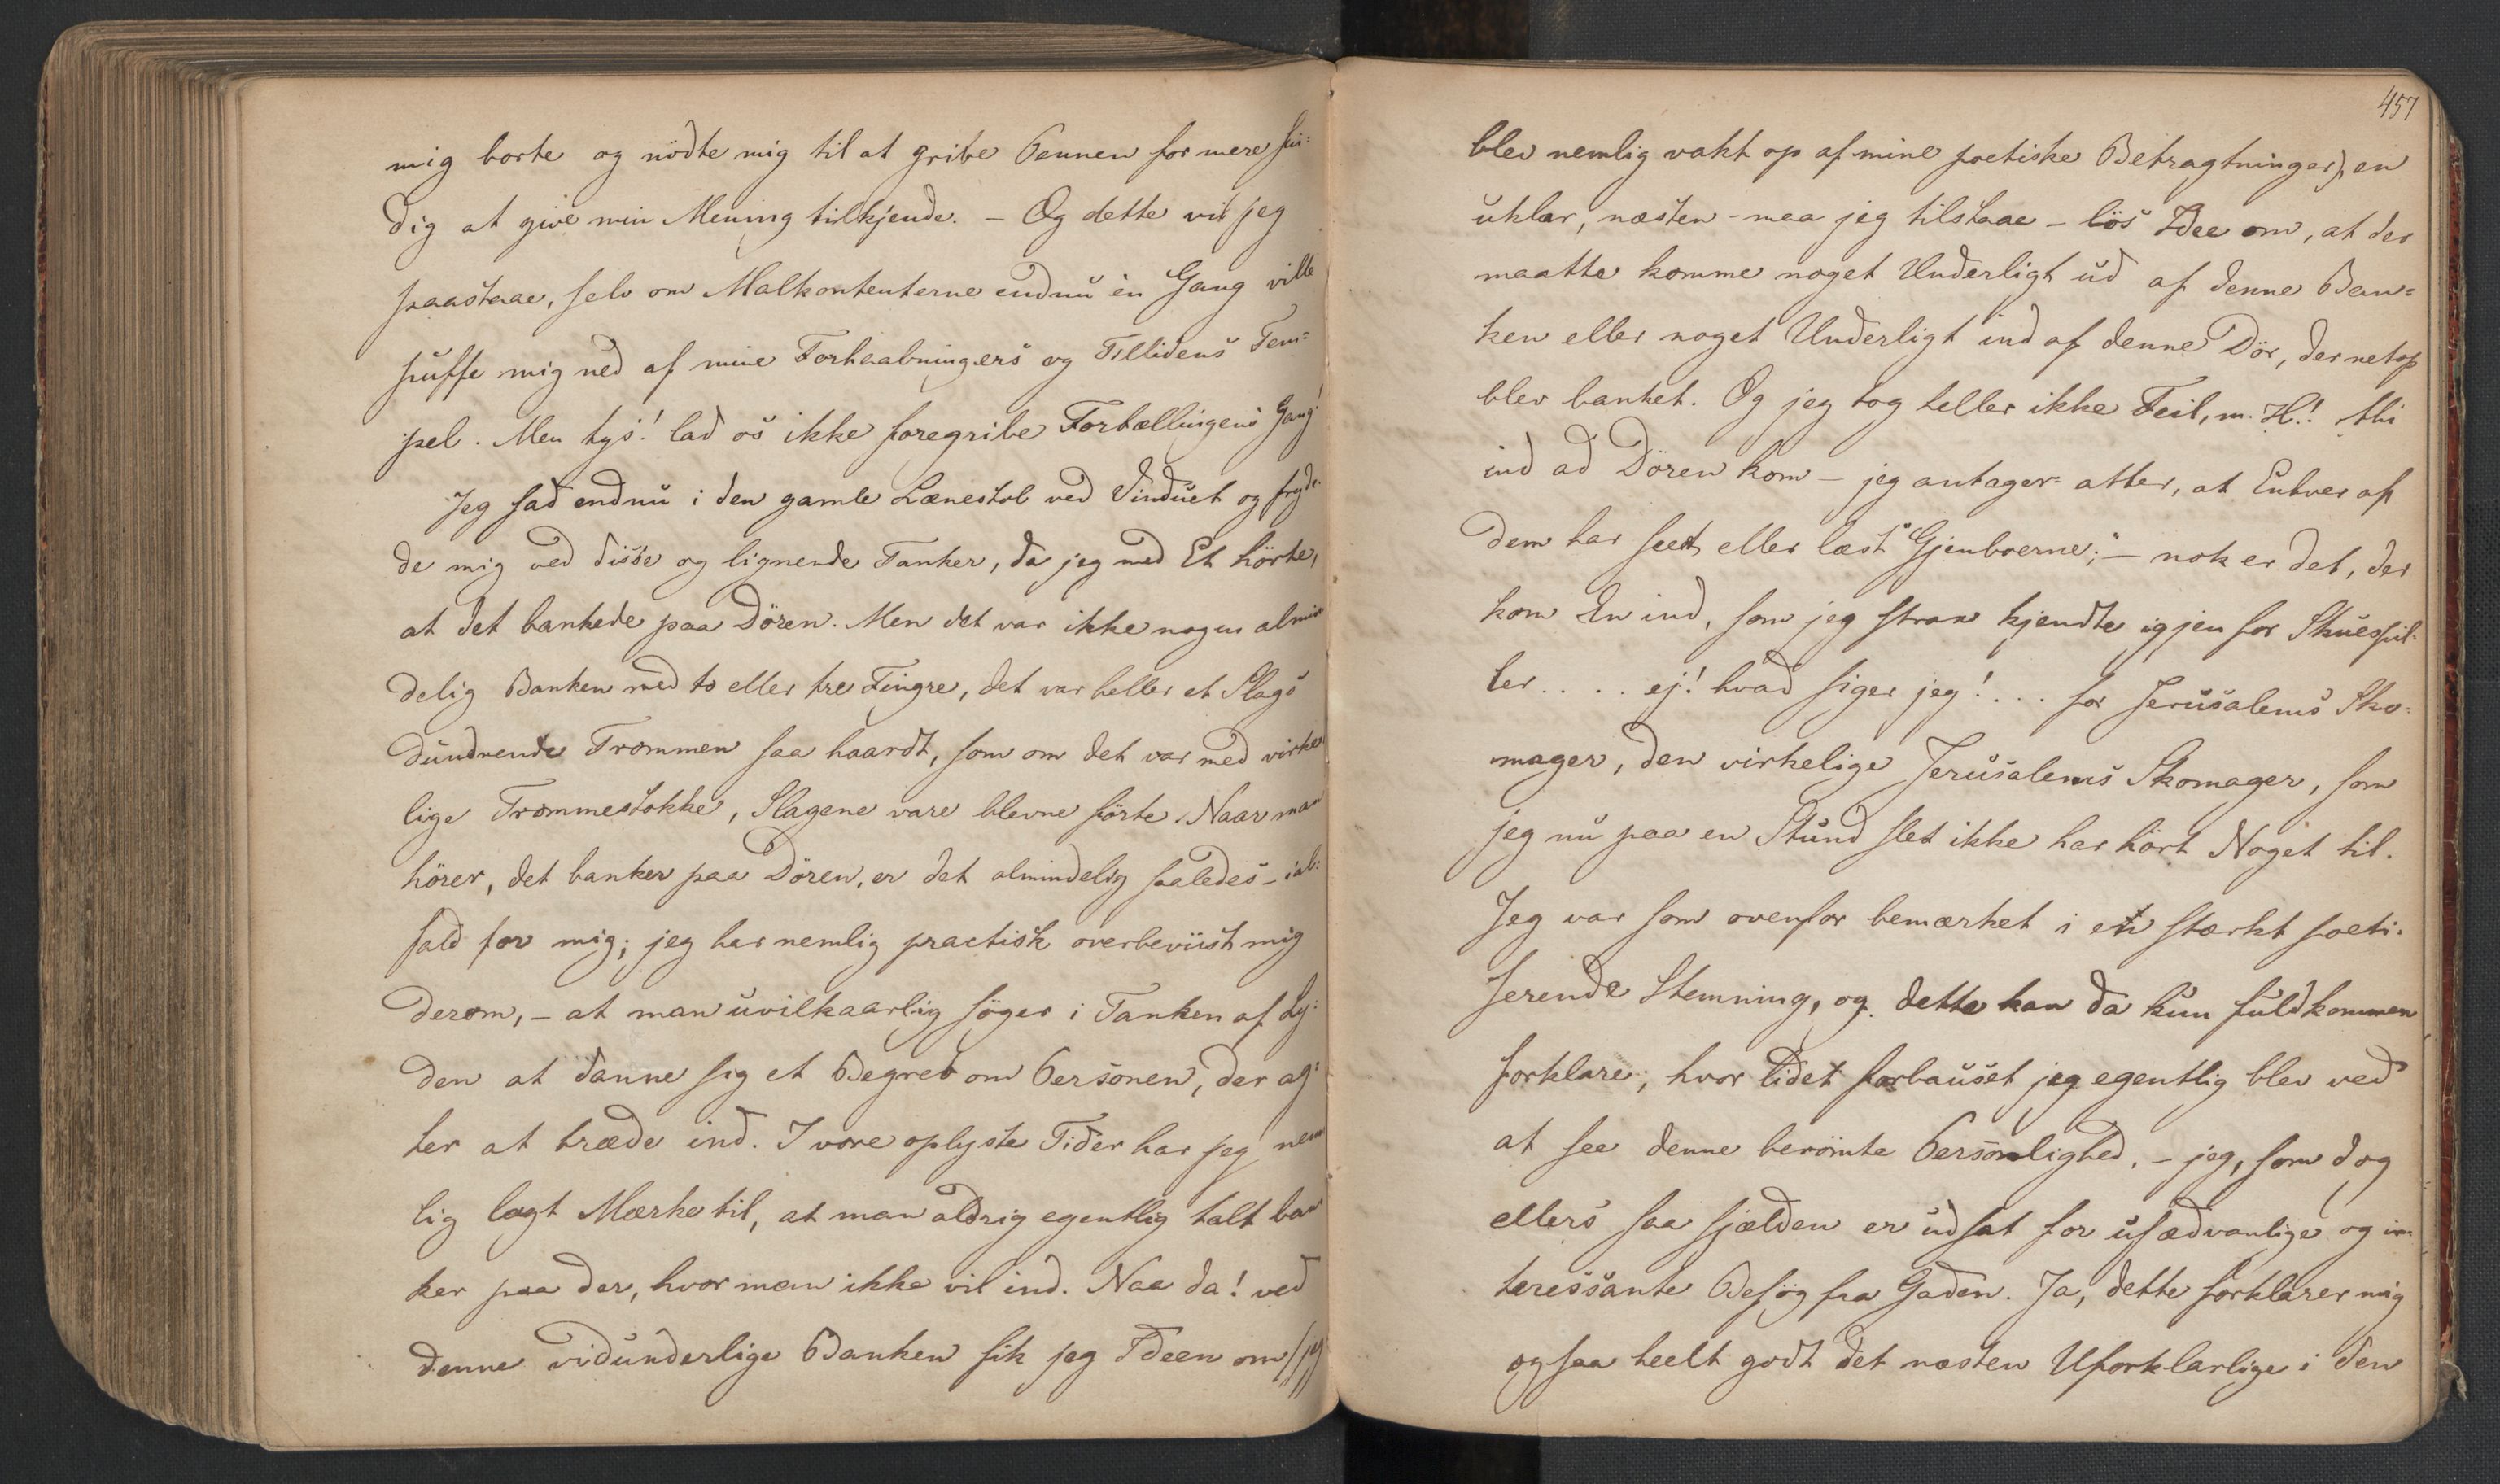 mig borte og nödte mig til at gribe Pennen for mere fui-
dig at give min Mening tilkjende. - Og dette vil jeg
paastaae, selv om Malkontenterne endnu èn Gang ville
puffe mig ned af mine Forhaabningers og Tillidens Tem=
pel. Men tys! lad os ikke foregribe Fortællingens Gang!
Jeg sad endnu i den gamle Lænestol ved Vinduet og fryde-
de mig ved disse og lignende Tanker, da jeg med Et hörte,
at det bankede paa Dören. Men det var ikke nogen almin
delig Banken med to eller tre Fingre, det var heller et Slags
dundrende Trommen saa haardt, som om det var med virke
lige Trommestokke, Slagene vare blevne förte. Naar man
hörer, det banker paa Dören, er det almindelig saaledes - ial-
fald for mig; jeg har nemlig practisk overbeviist mig
derom, - at man uvilkaarlig söger i Tanken af Ly-
den at danne sig et Begreb om Personen, der ag-
ter at træde ind. I vore oplyste Tider har jeg nem
lig lagt Mærke til, at man aldrig egentlig talt ban
ker paa der, hvor man ikke vil ind. Naa da! ved
denne vidunderlige Banken fik jeg Ideen om (jeg
457
blev nemlig vakt op af mine poetiske Betragtninger), en
uklar, næsten - maa jeg tilstaae - lös Idee om, at der
maatte komme noget Underligt ud af denne Ban=
ken eller noget Underligt ind af denne Dör, der netop
blev banket. Og jeg tog heller ikke Feil, m. H.! thi
ind ad Dören kom - jeg antager atter, at Enhver af
Dem har seet eller læst "Gjenboerne;" - nok er det, der
kom En ind, som jeg strax kjendte igjen for Skuespil-
ler .... ej! hvad siger jeg! ... for Jerusalems Sko-
mager, den virkelige Jerusalems Skomager, som
jeg nu paa en Stund slet ikke har hört Noget til.
Jeg var som ovenfor bemærket i en stærkt poeti-
serende Stemning, og dette kan da kun fuldkommen
forklare, hvor lidet forbauset jeg egentlig blev ved
at see denne berömte Personlighed, - jeg, som dog
ellers saa sjælden er udsat for usædvanlige og in-
teressante Besög fra Gaden. Ja, dette forklarer mig
ogsaa heelt godt det næsten Uforklarlige i den